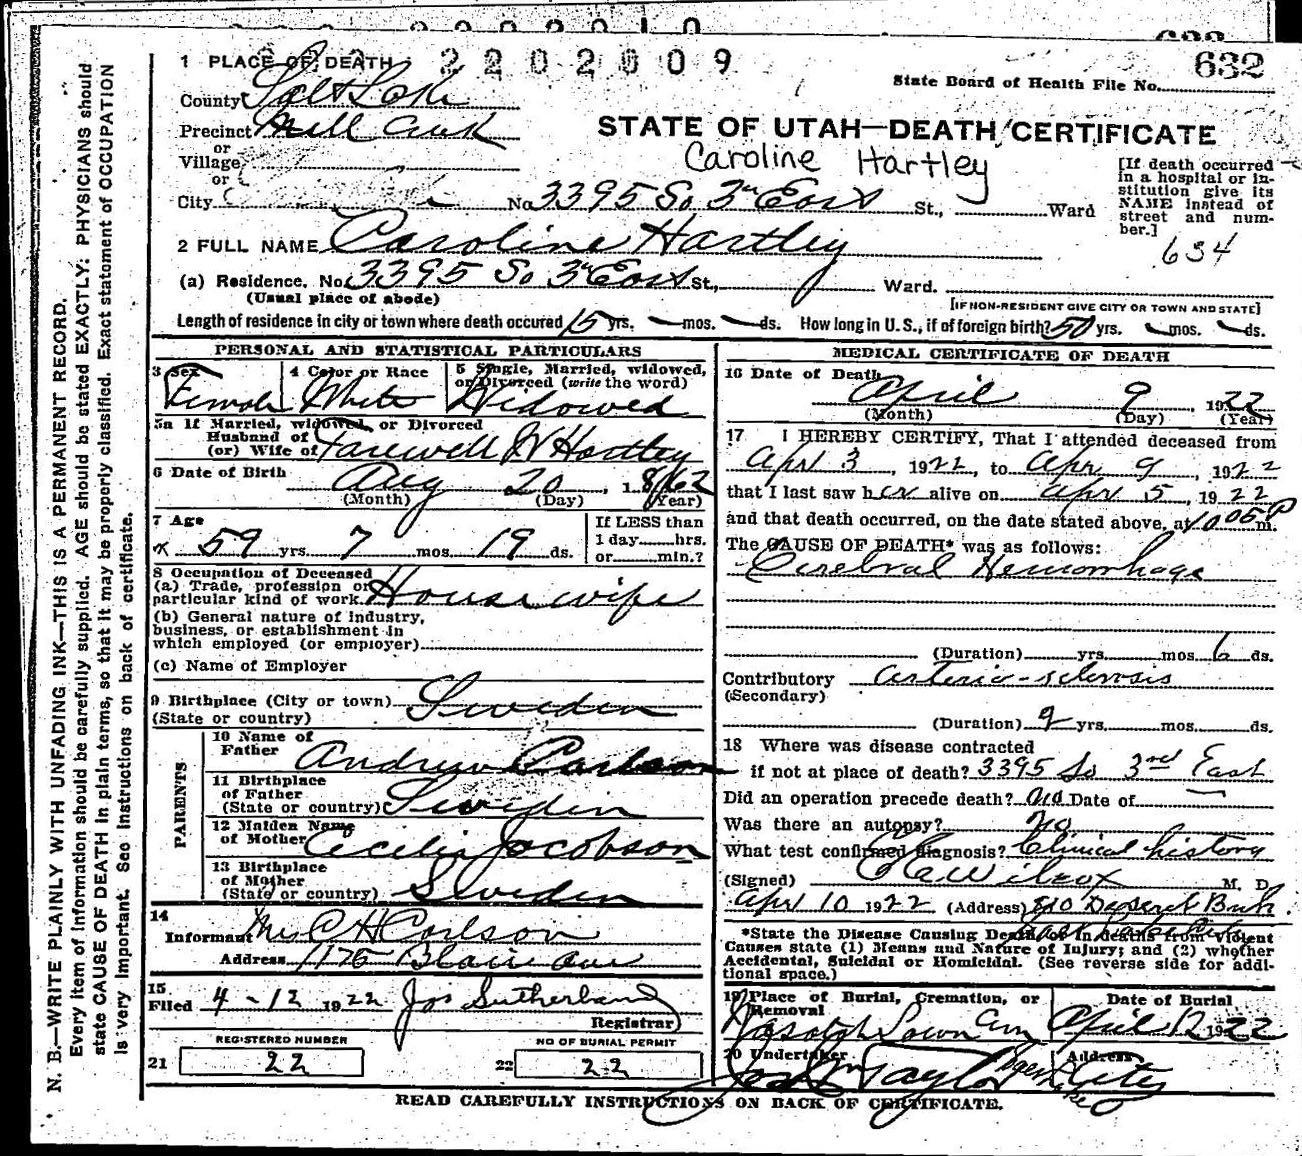 2202009
632
1 PLACE OF DEATH
State Board of Health File No.
County Salt Lake
Precinct Mill Creek
STATE OF UTAH—DEATH CERTIFICATE
or
Village
Caroline Hartley
[If death occurred
in a hospital or in-
stitution give its
NAME instead of
street and num-
ber.]
or
City No. 3395 So 3rd East St., Ward
634
2 FULL NAME Caroline Hartley
(a) Residence. No. 3395 So 3rd East St., Ward.
(Usual place of abode) [IF NON-RESIDENT GIVE CITY OR TOWN AND STATE]
Length of residence in city or town where death occured 15 yrs. — mos. — ds. How long in U. S., if of foreign birth? 50 yrs. — mos. — ds.
PERSONAL AND STATISTICAL PARTICULARS
3 Sex Female
4 Color or Race White
5 Single, Married, widowed,
or Divorced (write the word)
Widowed
5a If Married, widowed, or Divorced
Husband of
(or) Wife of Farewell W Hartley
6 Date of Birth Aug 20, 1862
(Month) (Day) (Year)
7 Age
59 yrs. 7 mos. 19 ds.
If LESS than
1 day......hrs.
or......min.?
8 Occupation of Deceased
(a) Trade, profession or
particular kind of work. Housewife
(b) General nature of industry,
business, or establishment in
which employed (or employer)
(c) Name of Employer
9 Birthplace (City or town) Sweden
(State or country)
PARENTS
10 Name of
Father Andrew Carlson
11 Birthplace
of Father
(State or country) Sweden
12 Maiden Name
of Mother Cecilia Jacobson
13 Birthplace
of Mother
(State or country) Sweden
14
Informant Mrs C H Carlson
Address 1176 Blaine ave
15
Filed 4-12 1922 Jos Sutherland
Registrar
REGISTERED NUMBER NO OF BURIAL PERMIT
21 22 22 22
MEDICAL CERTIFICATE OF DEATH
16 Date of Death
April 9, 1922
(Month) (Day) (Year)
17 I HEREBY CERTIFY, That I attended deceased from
Apr 3, 1922, to Apr 9, 1922
that I last saw her alive on Apr 5, 1922
and that death occurred, on the date stated above, at 10 05 P m.
The CAUSE OF DEATH* was as follows:
Cerebral Hemorrhage
(Duration) yrs. mos. 6 ds.
Contributory arterio-sclerosis
(Secondary)
(Duration) 2 yrs. mos. ds.
18 Where was disease contracted
if not at place of death? 3395 So 3rd East
Did an operation precede death? no Date of
Was there an autopsy? no
What test confirmed diagnosis? Clinical history
(Signed) Wilcox M. D.
Apr 10 1922 (Address) 810 Deseret Bank
*State the Disease Causing Death, or in deaths from Violent
Causes state (1) Means and Nature of Injury; and (2) whether
Accidental, Suicidal or Homicidal. (See reverse side for addi-
tional space.)
19 Place of Burial, Cremation, or
Removal
Wasatch Lawn Cem
Date of Burial
April 12 1922
20 Undertaker
Jos Wm Taylor
Address
City
READ CAREFULLY INSTRUCTIONS ON BACK OF CERTIFICATE.
N. B.—WRITE PLAINLY WITH UNFADING INK—THIS IS A PERMANENT RECORD.
Every item of information should be carefully supplied. AGE should be stated EXACTLY: PHYSICIANS should
state CAUSE OF DEATH in plain terms, so that it may be properly classified. Exact statement of OCCUPATION
is very important. See Instructions on back of certificate.